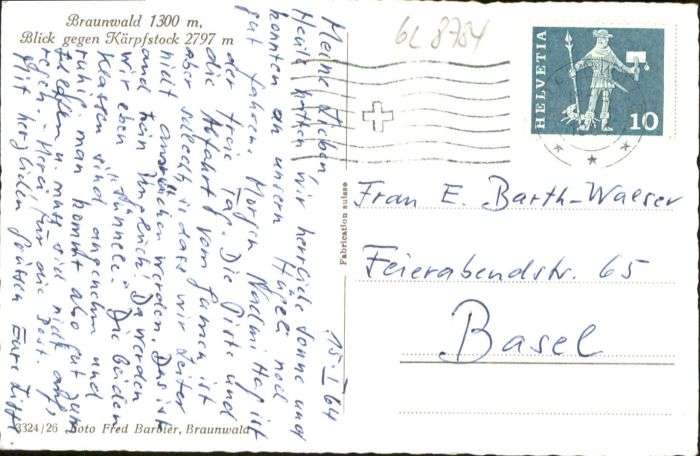 Braunwald 1300 m,
Blick gegen Kärpfstock 2797 m
6L 8784
HELVETIA
10
15. I 64
Meine Lieben
Heute hatten wir herrliche Sonne und
konnten an unsern Hüsli noch
gut fahren. Morgen Nachmittag ist
der freie Tag. Die Piste und
die Abfahrt vom Gumen ist
aber schlecht, so dass wir leider
nicht ausrücken werden. Das ist
auch kein Unglück! Da werden
wir eben "tünnele". Die beiden
Klassen sind angenehm und
ruhig, man kommt also gut zum
Schlafen u. muss sich nicht auf-
regen. - Merci für die Post.
Mit herzlichen Grüssen Eure
Fabrication suisse
Frau E. Barth-Waeser
Feierabendstr. 65
Basel
3324/26 Foto Fred Barbier, Braunwald